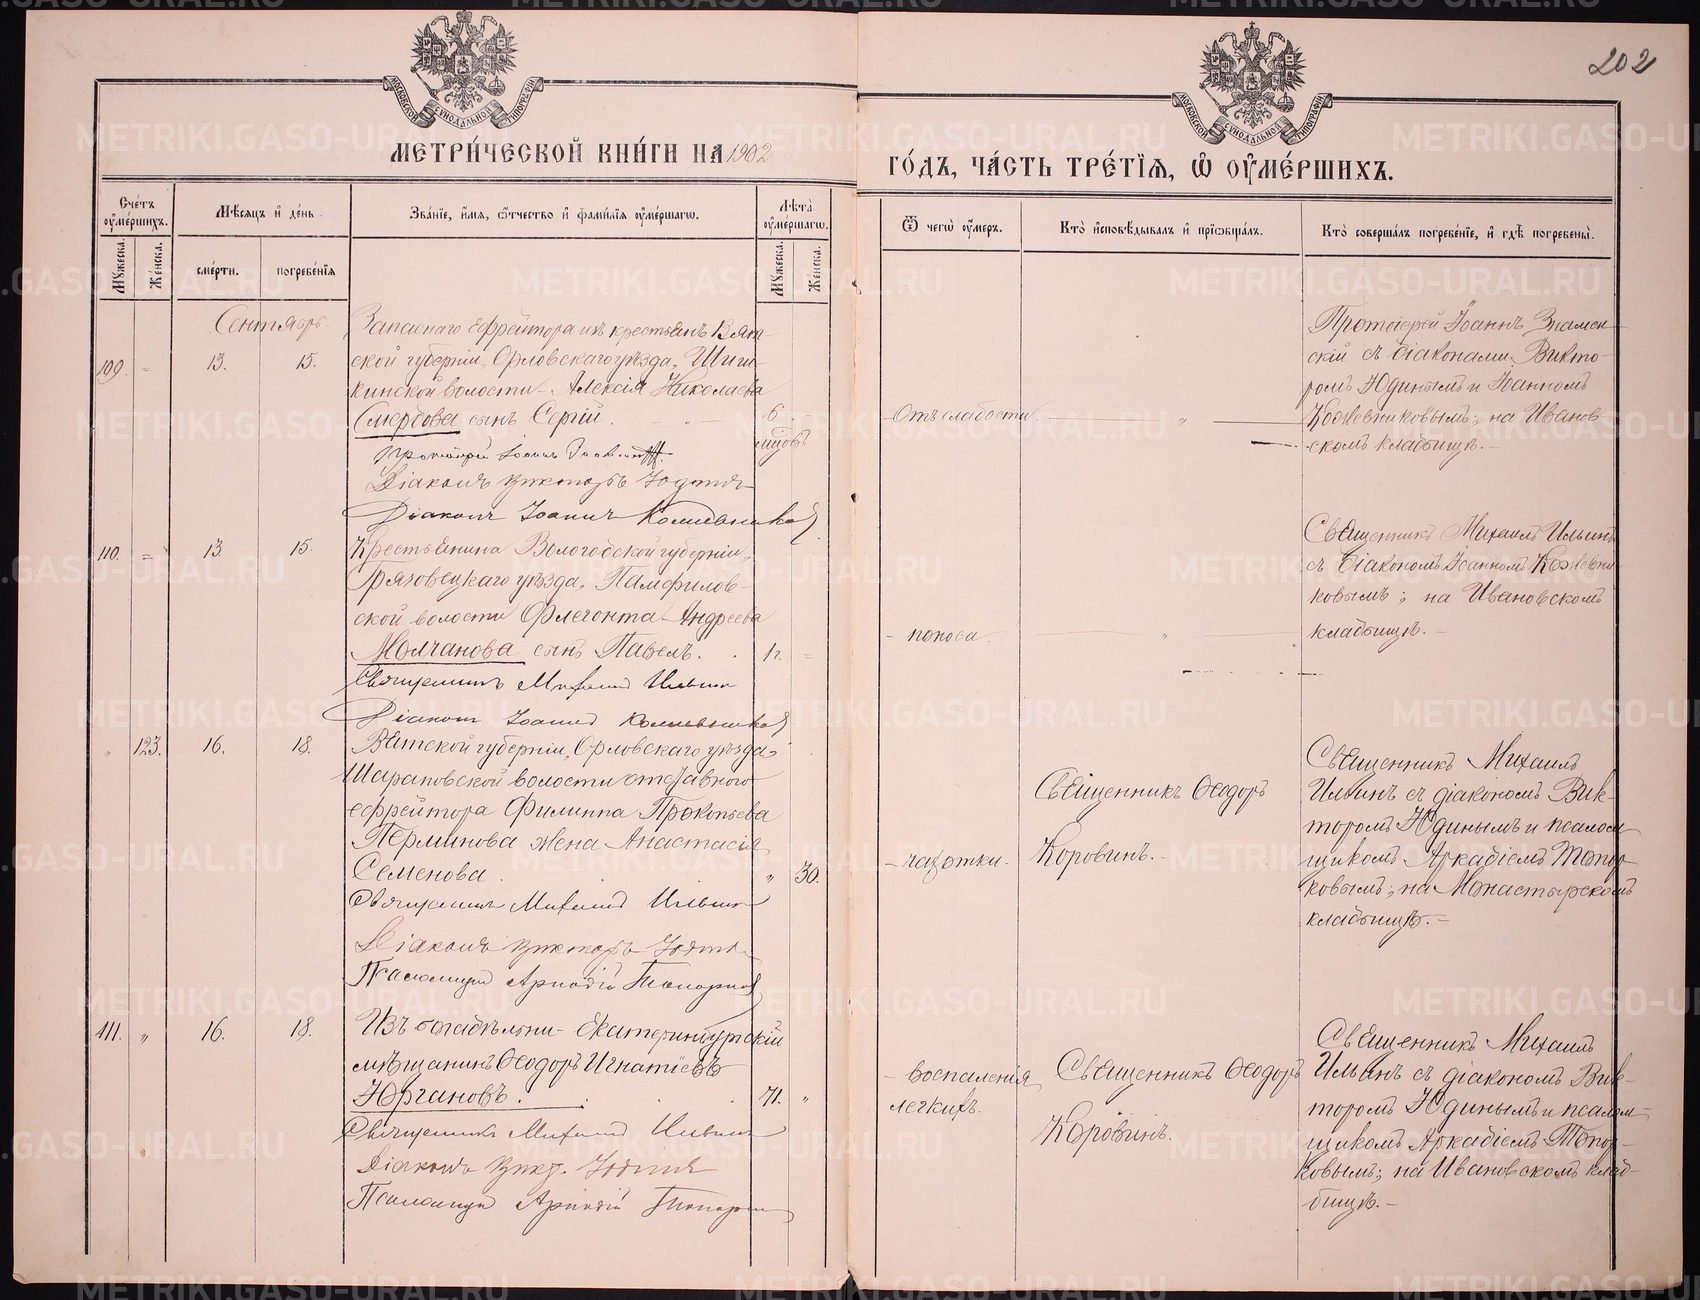 202
МОСКОВСКОЙ СѴНОДАЛЬНОЙ ТИПОГРАФІИ
МОСКОВСКОЙ СѴНОДАЛЬНОЙ ТИПОГРАФІИ
МЕТРИ́ЧЕСКОЙ КНИ́ГИ НА 1902
ГО́ДЪ, ЧА́СТЬ ТРЕ́ТІѦ, Ѡ ОУМЕ́РШИХЪ.
Сче́тъ оуме́ршихъ.
Мꙋ́жеска.
Же́нска.
Мѣ́сяцъ и де́нь.
сме́рти.
погребе́нїѧ
Зва́нїе, и́мѧ, ѻ́тчество и фами́лїѧ оуме́ршагѡ.
Лѣ́та оуме́ршагѡ.
Мꙋ́жеска.
Же́нска.
Ѿ чегѡ̀ оу́меръ.
Кто̀ и҆сповѣ́дывалъ и҆ прїѻбща́лъ.
Кто̀ соверша́лъ погребе́нїе, и҆ гдѣ̀ погребены̀.
Сентябрь.
109. - 13. 15.
Запаснаго ефрейтора изъ крестьянъ Вят-
ской губерніи, Орловскаго уѣзда, Шиш-
кинской волости Алексія Николаева
Смердова сынъ Сергій.
6 мѣсяцовъ
Протоіерей Іоаннъ Знаменскій
Діаконъ Викторъ Юдинъ
Діаконъ Іоаннъ Кожевниковъ
Отъ слабости
„
Протоіерей Іоаннъ Знамен-
скій съ діаконами Викто-
ромъ Юдинымъ и Іоанномъ
Кожевниковымъ; на Иванов-
скомъ кладбищѣ.-
110. - 13. 15.
Крестьянина Вологодской губерніи,
Грязовецкаго уѣзда, Памфилов-
ской волости Флегонта Андреева
Молчанова сынъ Павелъ.
1 г. -
Священникъ Михаилъ Ильинъ
Діаконъ Іоаннъ Кожевниковъ
- поноса.
„
Священникъ Михаилъ Ильинъ
съ діакономъ Іоанномъ Кожевни-
ковымъ; на Ивановскомъ
кладбищѣ.-
„ 123. 16. 18.
Вятской губерніи, Орловскаго уѣзда,
Шарановской волости отставного
ефрейтора Филиппа Прокопьева
Перминова жена Анастасія
Семенова.
„ 30.
Священникъ Михаилъ Ильинъ
Діаконъ Викторъ Юдинъ
Псаломщикъ Аркадій Топорковъ
- чахотки.
Священникъ Ѳеодоръ
Коровинъ.-
Священникъ Михаилъ
Ильинъ съ діакономъ Вик-
торомъ Юдинымъ и псалом-
щикомъ Аркадіемъ Топор-
ковымъ; на Монастырскомъ
кладбищѣ.-
111. „ 16. 18.
Изъ богадѣльни Екатеринбургскій
мѣщанинъ Ѳеодоръ Игнатіевъ
Юргановъ.
71. „
Священникъ Михаилъ Ильинъ
Діаконъ Викт. Юдинъ
Псаломщикъ Аркадій Топорковъ
- воспаленія
легкихъ.
Священникъ Ѳеодоръ
Коровинъ.
Священникъ Михаилъ
Ильинъ съ діакономъ Вик-
торомъ Юдинымъ и псалом-
щикомъ Аркадіемъ Топор-
ковымъ; на Ивановскомъ клад-
бищѣ.-
METRIKI.GASO-URAL.RU